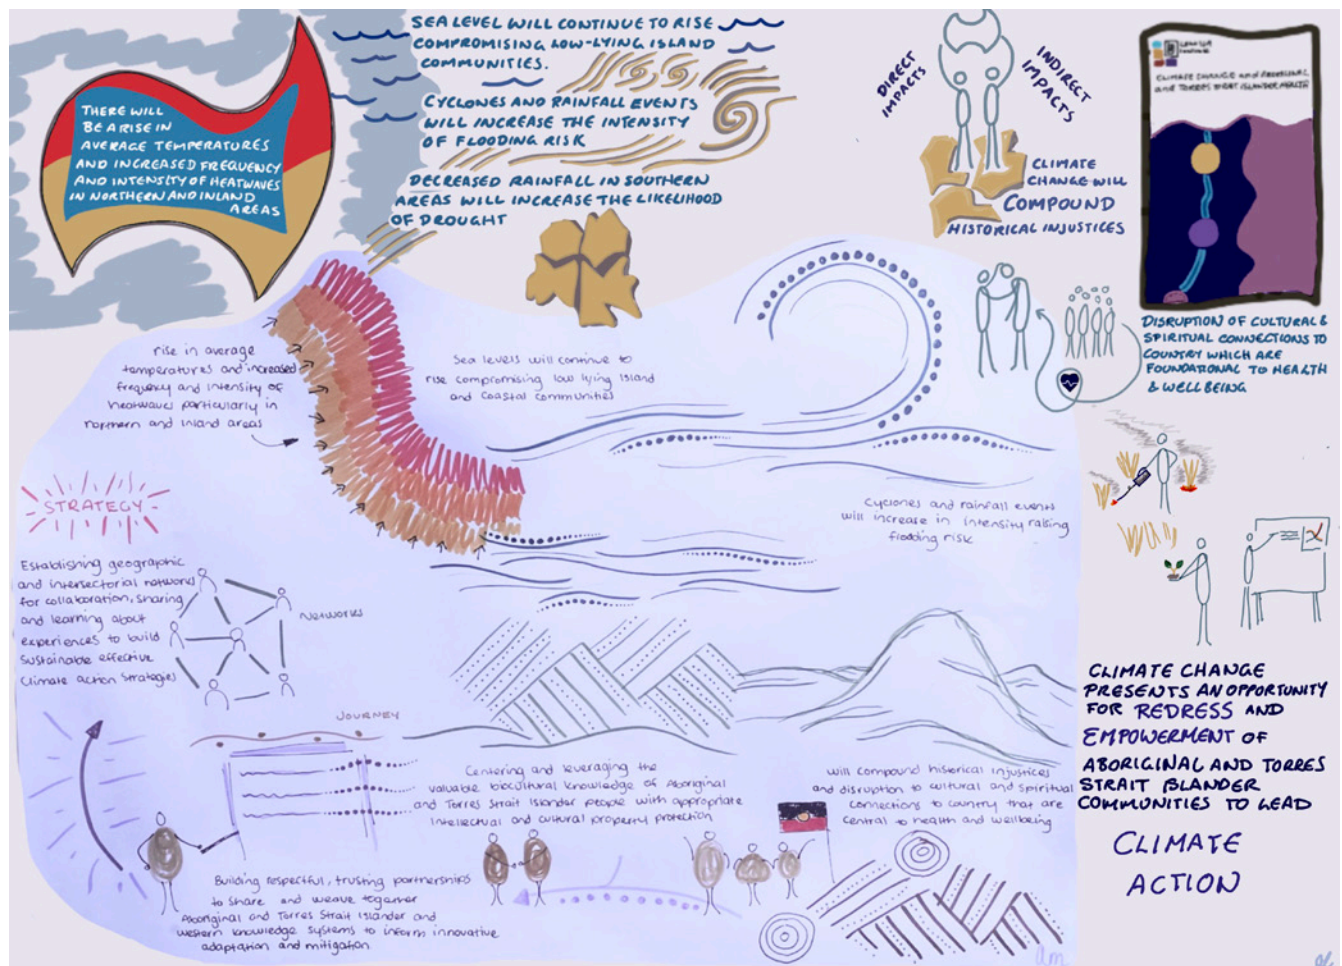 THERE WILL
BE A RISE IN
AVERAGE TEMPERATURES
AND INCREASED FREQUENCY
AND INTENSITY OF HEATWAVES
IN NORTHERN AND INLAND
AREAS
SEA LEVEL WILL CONTINUE TO RISE
COMPROMISING LOW-LYING ISLAND
COMMUNITIES.
CYCLONES AND RAINFALL EVENTS
WILL INCREASE THE INTENSITY
OF FLOODING RISK
DECREASED RAINFALL IN SOUTHERN
AREAS WILL INCREASE THE LIKELIHOOD
OF DROUGHT
DIRECT
IMPACTS
INDIRECT
IMPACTS
CLIMATE
CHANGE WILL
COMPOUND
HISTORICAL INJUSTICES
CLIMATE CHANGE and ABORIGINAL
and TORRES STRAIT ISLANDER HEALTH
DISRUPTION OF CULTURAL &
SPIRITUAL CONNECTIONS TO
COUNTRY WHICH ARE
FOUNDATIONAL TO HEALTH
& WELLBEING
rise in average
temperatures and increased
frequency and intensity of
heatwaves particularly in
northern and inland areas
Sea levels will continue to
rise compromising low lying island
and coastal communities
Cyclones and rainfall events
will increase in intensity raising
flooding risk
STRATEGY
Establishing geographic
and intersectorial networks
for collaboration, sharing
and learning about
experiences to build
sustainable effective
climate action strategies
Networks
JOURNEY
Centering and leveraging the
valuable biocultural knowledge of Aboriginal
and Torres Strait Islander people with appropriate
intellectual and cultural property protection
will compound historical injustices
and disruption to cultural and spiritual
connections to country that are
central to health and wellbeing
Building respectful, trusting partnerships
to share and weave together
Aboriginal and Torres Strait Islander and
western knowledge systems to inform innovative
adaptation and mitigation
CLIMATE CHANGE
PRESENTS AN OPPORTUNITY
FOR REDRESS AND
EMPOWERMENT OF
ABORIGINAL AND TORRES
STRAIT ISLANDER
COMMUNITIES TO LEAD
CLIMATE
ACTION
am